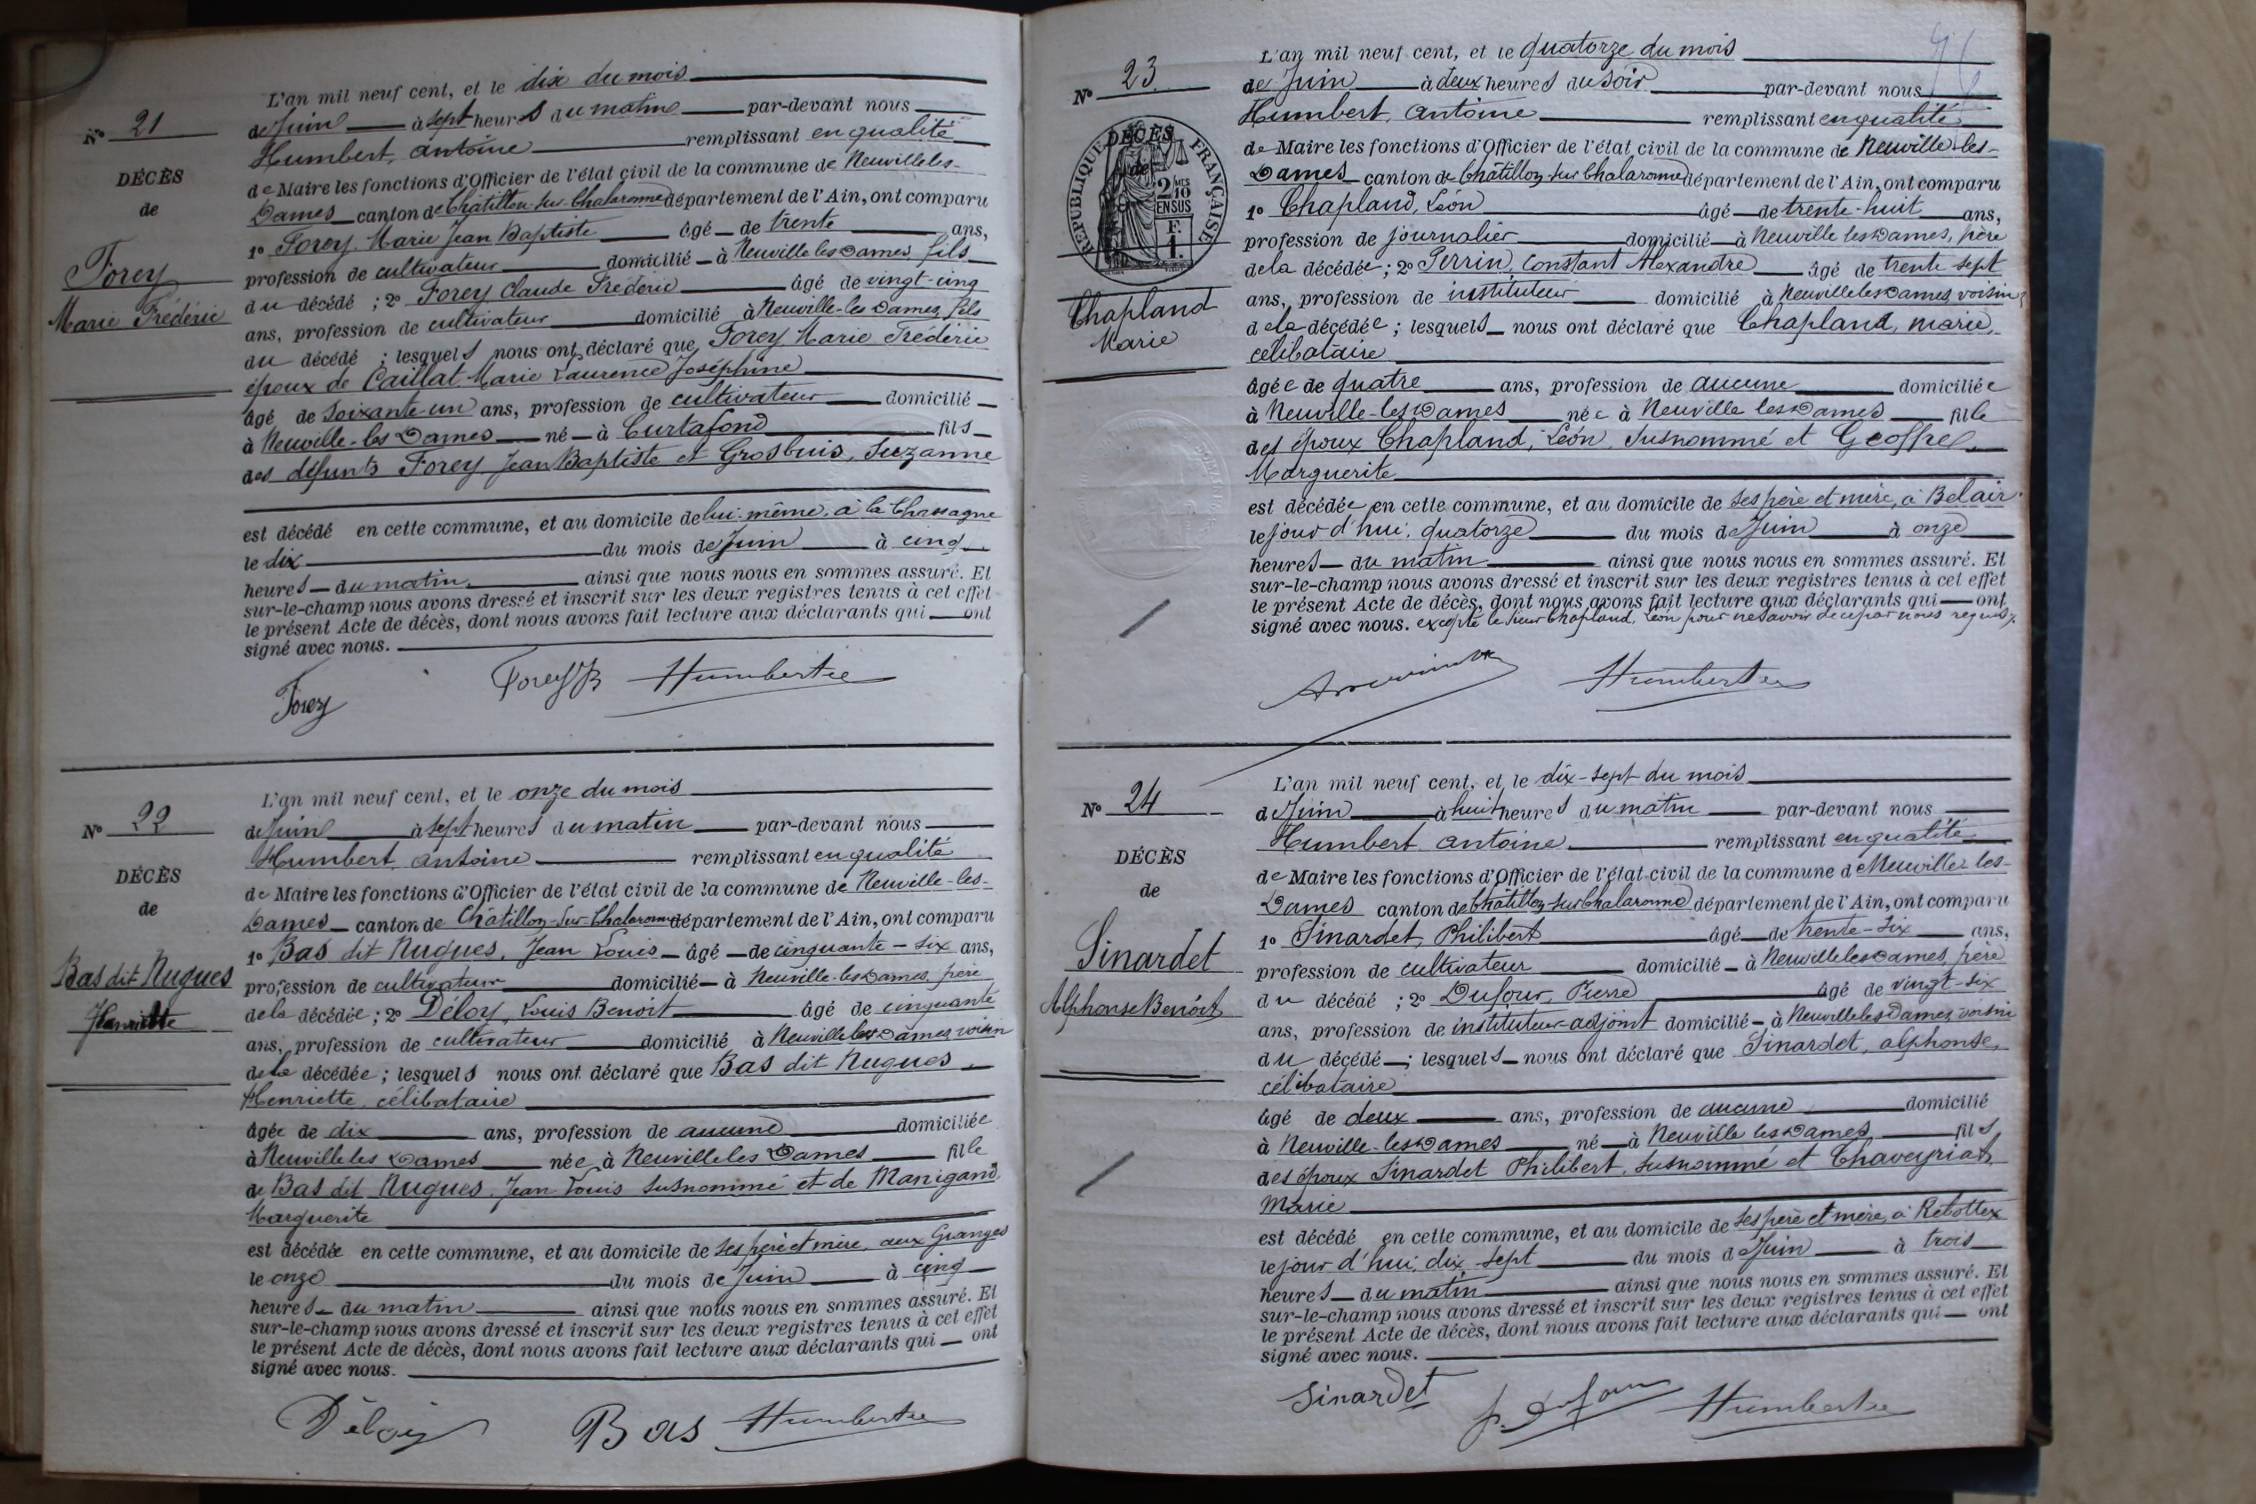 N° 21
DÉCÈS
de
Forey
Marie Frédéric
L'an mil neuf cent, et le dix du mois
de Juin à sept heures du matin par-devant nous
Humbert, antoine remplissant en qualité
de Maire les fonctions d'Officier de l'état civil de la commune de Neuville les-
Dames canton de Châtillon-sur-Chalaronne département de l'Ain, ont comparu
1° Forey Marie Jean Baptiste âgé de trente ans,
profession de cultivateur domicilié à Neuville les Dames, fils
du décédé ; 2° Forey Claude Frédéric âgé de vingt-cinq
ans, profession de cultivateur domicilié à Neuville-les Dames, fils
du décédé ; lesquels nous ont déclaré que Forey Marie Frédéric
époux de Caillat Marie Laurence Joséphine
âgé de soixante un ans, profession de cultivateur domicilié
à Neuville-les Dames né à Curtafond fils
des défunts Forey Jean Baptiste et Grosbuis, Suzanne
est décédé en cette commune, et au domicile de lui-même, à la Chassagne
le dix du mois de Juin à cinq
heures du matin, ainsi que nous nous en sommes assuré. Et
sur-le-champ nous avons dressé et inscrit sur les deux registres tenus à cet effet
le présent Acte de décès, dont nous avons fait lecture aux déclarants qui ont
signé avec nous.
Forey Forey JB Humbert
N° 22
DÉCÈS
de
Bas dit Nugues
Henriette
L'an mil neuf cent, et le onze du mois
de Juin à sept heures du matin par-devant nous
Humbert, antoine remplissant en qualité
de Maire les fonctions d'Officier de l'état civil de la commune de Neuville-les-
Dames canton de Châtillon-sur-Chalaronne département de l'Ain, ont comparu
1° Bas dit Nugues, Jean Louis âgé de cinquante-six ans,
profession de cultivateur domicilié à Neuville-les Dames, père
de la décédée ; 2° Déloy, Louis Benoit âgé de cinquante
ans, profession de cultivateur domicilié à Neuville les Dames, voisin
de la décédée ; lesquels nous ont déclaré que Bas dit Nugues
Henriette, célibataire
âgée de dix ans, profession de aucune domiciliée
à Neuville les Dames née à Neuville les Dames fille
de Bas dit Nugues, Jean Louis susnommé et de Manigand
Marguerite
est décédée en cette commune, et au domicile de ses père et mère, aux Granges
le onze du mois de Juin à cinq
heures du matin ainsi que nous nous en sommes assuré. Et
sur-le-champ nous avons dressé et inscrit sur les deux registres tenus à cet effet
le présent Acte de décès, dont nous avons fait lecture aux déclarants qui ont
signé avec nous.
Déloy Bas Humbert
N° 23
RÉPUBLIQUE FRANÇAISE
DÉCÈS
de
2 MES
10
EN SUS
F.
1.
Chapland
Marie
L'an mil neuf cent, et le quatorze du mois
de Juin à deux heures du soir par-devant nous
Humbert, antoine remplissant en qualité
de Maire les fonctions d'Officier de l'état civil de la commune de Neuville-les-
Dames canton de Châtillon-sur Chalaronne département de l'Ain, ont comparu
1° Chapland, Léon âgé de trente-huit ans,
profession de journalier domicilié à Neuville les Dames, père
de la décédée ; 2° Perrin, Constant Alexandre âgé de trente sept
ans, profession de instituteur domicilié à Neuville les Dames, voisin
de la décédée ; lesquels nous ont déclaré que Chapland, marie,
célibataire
âgée de quatre ans, profession de aucune domiciliée
à Neuville-les Dames née à Neuville les Dames fille
des époux Chapland, Léon, susnommé et Geoffre
Marguerite
est décédée en cette commune, et au domicile de ses père et mère, à Belair
le jour d'hui, quatorze du mois de Juin à onze
heures du matin ainsi que nous nous en sommes assuré. Et
sur-le-champ nous avons dressé et inscrit sur les deux registres tenus à cet effet
le présent Acte de décès, dont nous avons fait lecture aux déclarants qui ont
signé avec nous. excepté le sieur Chapland, Léon pour ne savoir de ce par nous requis.
Humbert
N° 24
DÉCÈS
de
Sinardet
Alphonse Benoit
L'an mil neuf cent, et le dix-sept du mois
de Juin à huit heures du matin par-devant nous
Humbert antoine remplissant en qualité
de Maire les fonctions d'Officier de l'état civil de la commune de Neuville les-
Dames canton de Châtillon-sur Chalaronne département de l'Ain, ont comparu
1° Sinardet, Philibert âgé de trente-six ans,
profession de cultivateur domicilié à Neuville les Dames, père
du décédé ; 2° Dufour, Pierre âgé de vingt-six
ans, profession de instituteur-adjoint domicilié à Neuville les Dames, voisin
du décédé ; lesquels nous ont déclaré que Sinardet, alphonse,
célibataire
âgé de deux ans, profession de aucune domicilié
à Neuville-les Dames né à Neuville les Dames fils
des époux Sinardet Philibert, susnommé et Chaveyriat
Marie
est décédé en cette commune, et au domicile de ses père et mère, à Rebottex
le jour d'hui, dix-sept du mois de Juin à trois
heures du matin ainsi que nous nous en sommes assuré. Et
sur-le-champ nous avons dressé et inscrit sur les deux registres tenus à cet effet
le présent Acte de décès, dont nous avons fait lecture aux déclarants qui ont
signé avec nous.
Sinardet P. Dufour Humbert